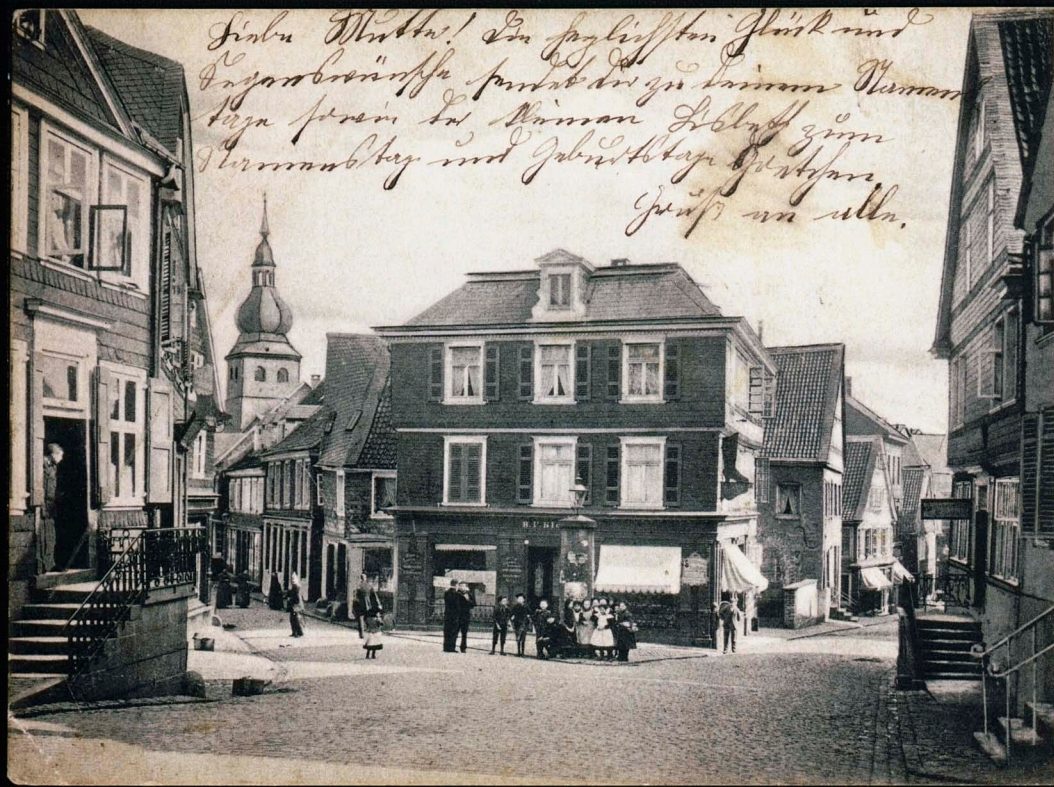 Liebe Mutter! Die herzlichsten Glück und
Segenswünsche sendet dir zu deinem Namens
tage sowie der kleinen Lisbeth zum
Namenstag und Geburtstage Gretchen.
Gruß an alle.